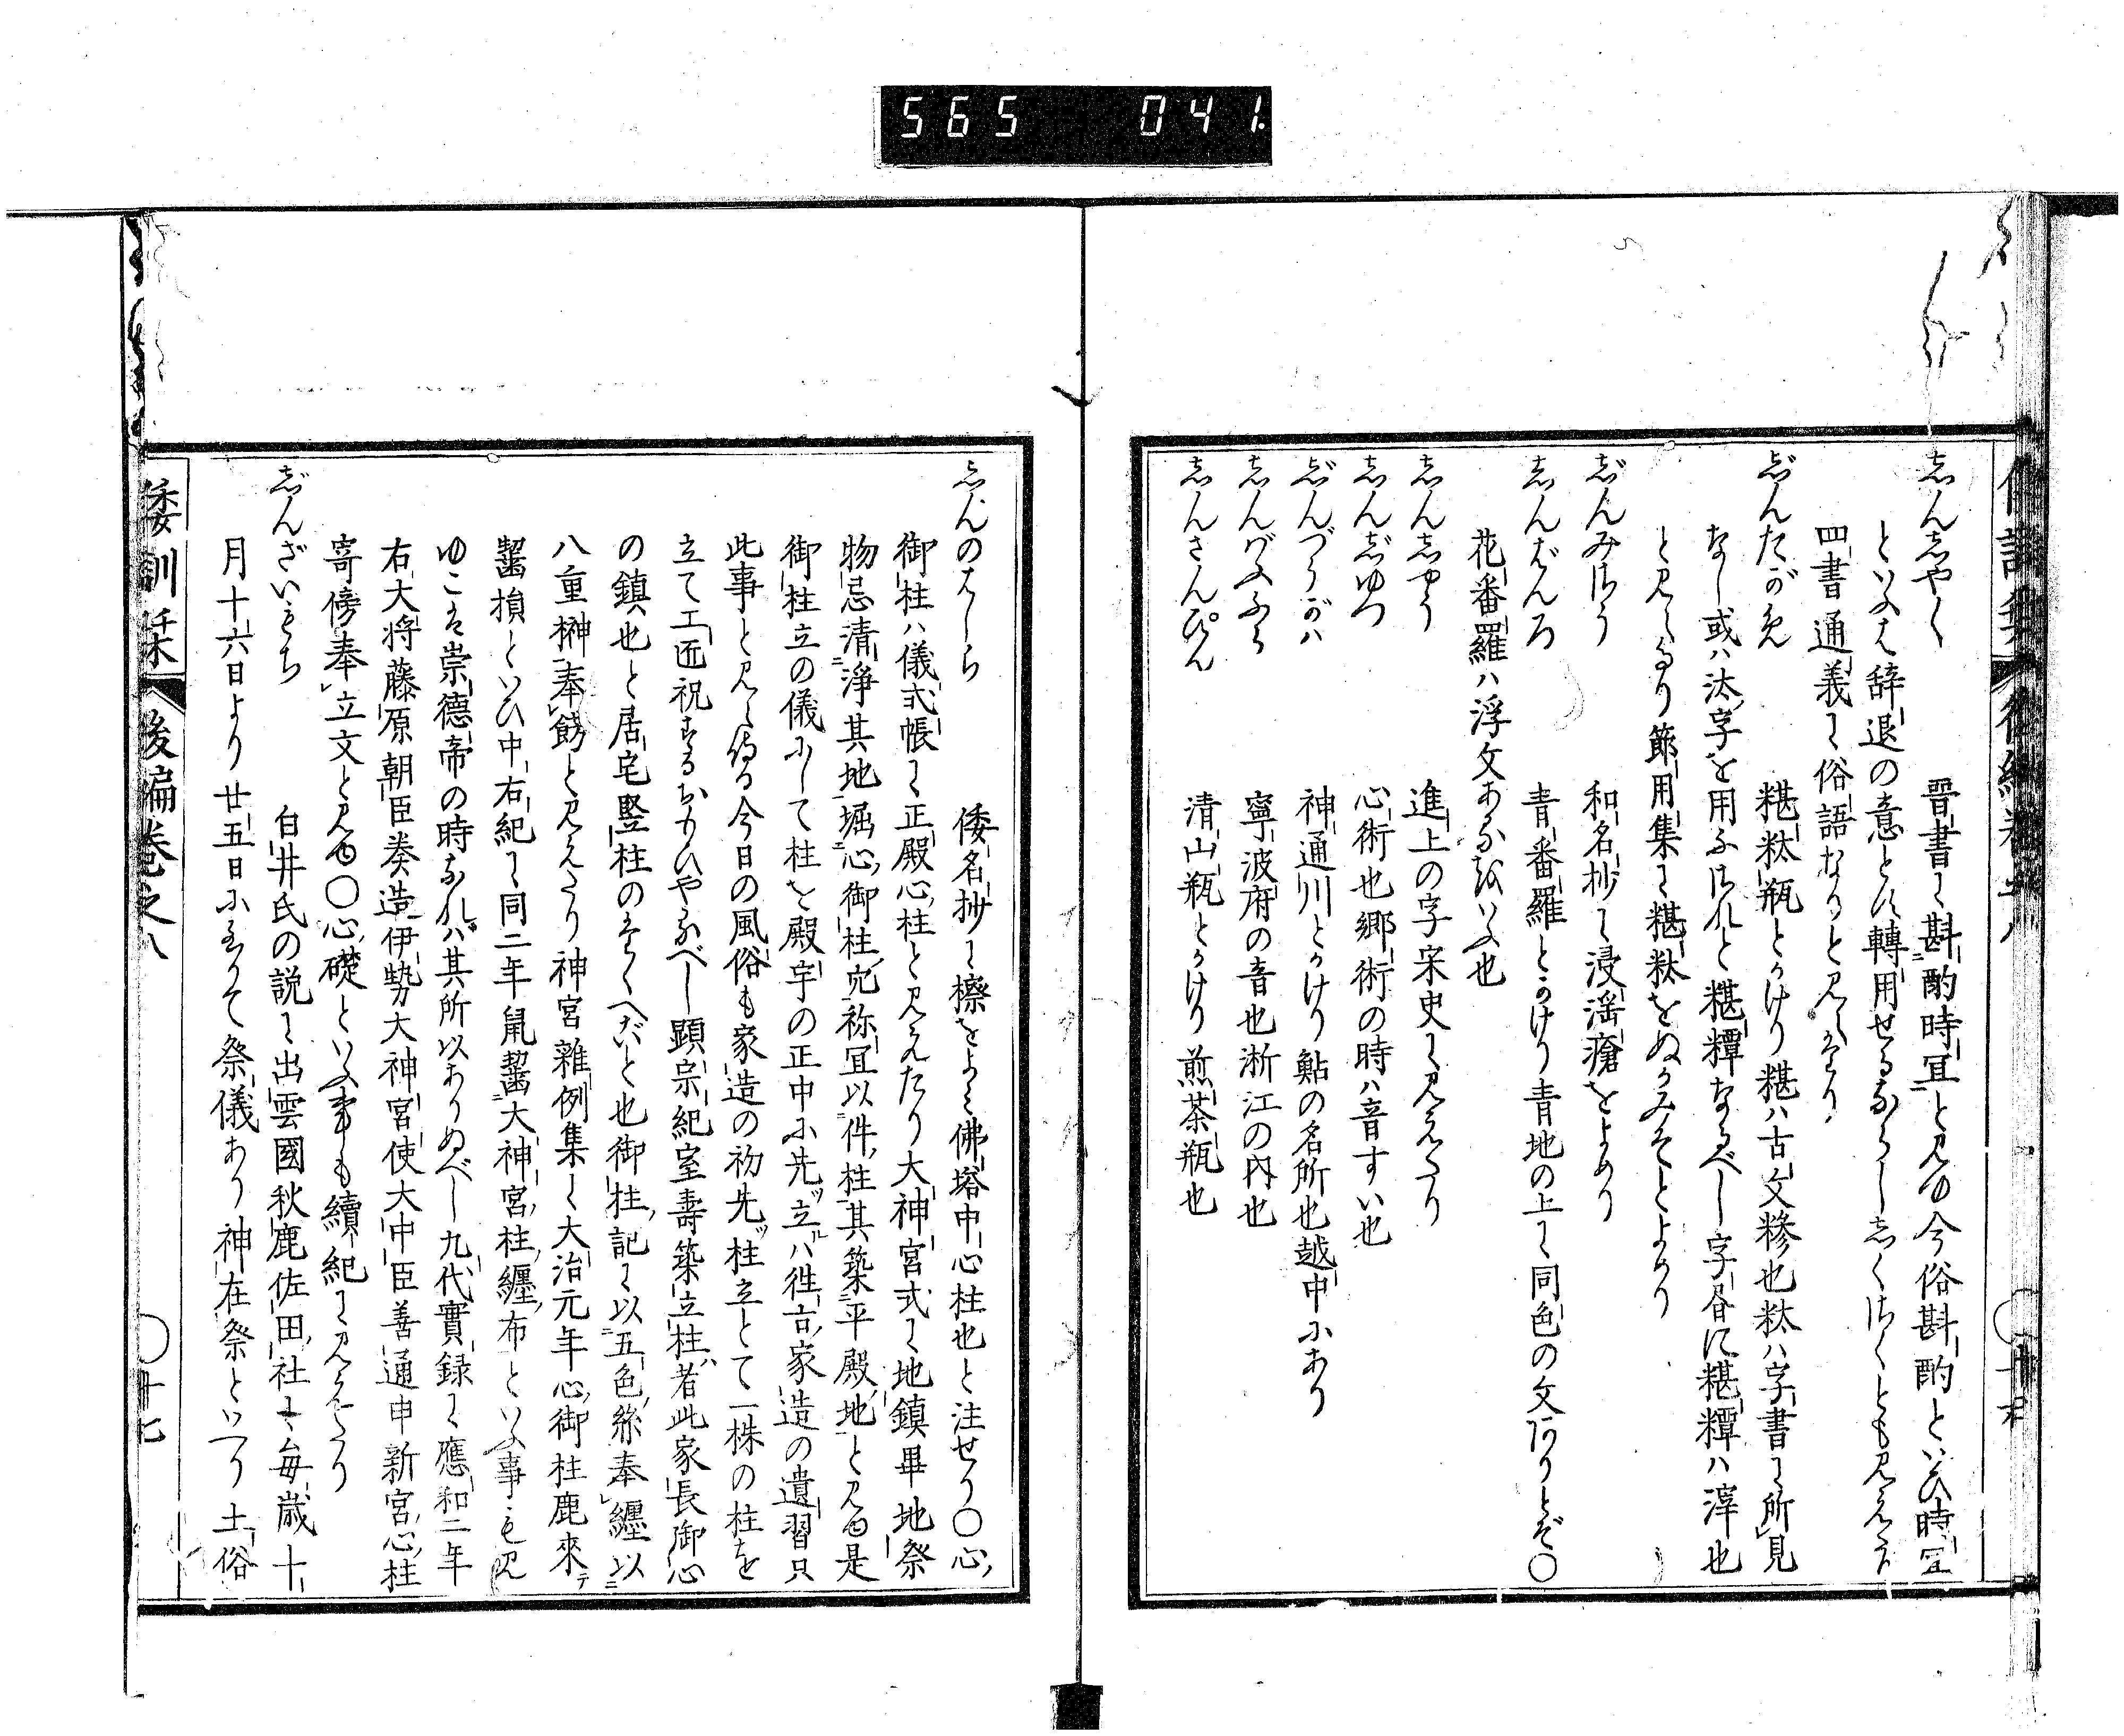 565 041
志ん志やく 晋書に斟酌時宜と見ゆ今俗斟酌といひ時宜
といふは辞退の意とハ轉用せるなるべし志んしやくとも見えたり
四書通義に俗語なりと見えたり
志んたがめ 糂𥹢瓶とかけり糂ハ古文糝也𥹢ハ字書に所見
なし或ハ汰字を用ふれと糂糫なるべし字書に糂糫ハ滓也
と見えたり節用集に糂𥹢をぬかみそとよめり
志んみさう 和名抄に浸滛瘡をよめり
志んばんろ 青番羅とかけり青地の上に同色の文ありとぞ○
花番羅ハ浮文あるをいふ也
志ん志やう 進上の字宋史に見えたり
志んじゆつ 心術也郷術の時ハ音すい也
志んづうがハ 神通川とかけり鮎の名所也越中にあり
志んバふふう 寧波府の音也浙江の内也
志んさんぴん 清山瓶とかけり煎茶瓶也
倭訓栞 後編巻之八 ○十七
志んのはしら 倭名抄に檫をよみ佛塔中心柱也と注せり○心
御柱ハ儀式帳に正殿心柱と見えたり大神宮式に地鎮畢地祭
物忌清浄其地堀心御柱宂祢宜以件柱其築平殿地と見ゆ是
御柱立の儀にして柱を殿宇の正中に先ッ立ハ徃古家造の遺習只
此事と見え侍る今日の風俗も家造の初先ッ柱立とて一株の柱を
立て工匠祝するおもひやるべし顕宗紀室壽築立柱者此家長御心
の鎮也と居宅竪柱のことくへだと也御柱記に以五色絲奉纏以
八重榊奉餝と見えたり神宮雜例集に大治元年心御柱鹿來
齧損といひ中右紀に同二年鼠齧大神宮柱纏布といふ事も見
ゆこは崇德帝の時なれバ其所以ありぬべし九代實録に應和二年
右大将藤原朝臣奏造伊勢大神宮使大中臣善通申新宮心柱
寄傍奉立文と見ゆ○心礎といふ事も續紀に見えたり
志んざいもち 白井氏の説に出雲國秋鹿佐田社に毎歳十
月十六日より廿五日にいたて祭儀あり神在祭といへり土俗